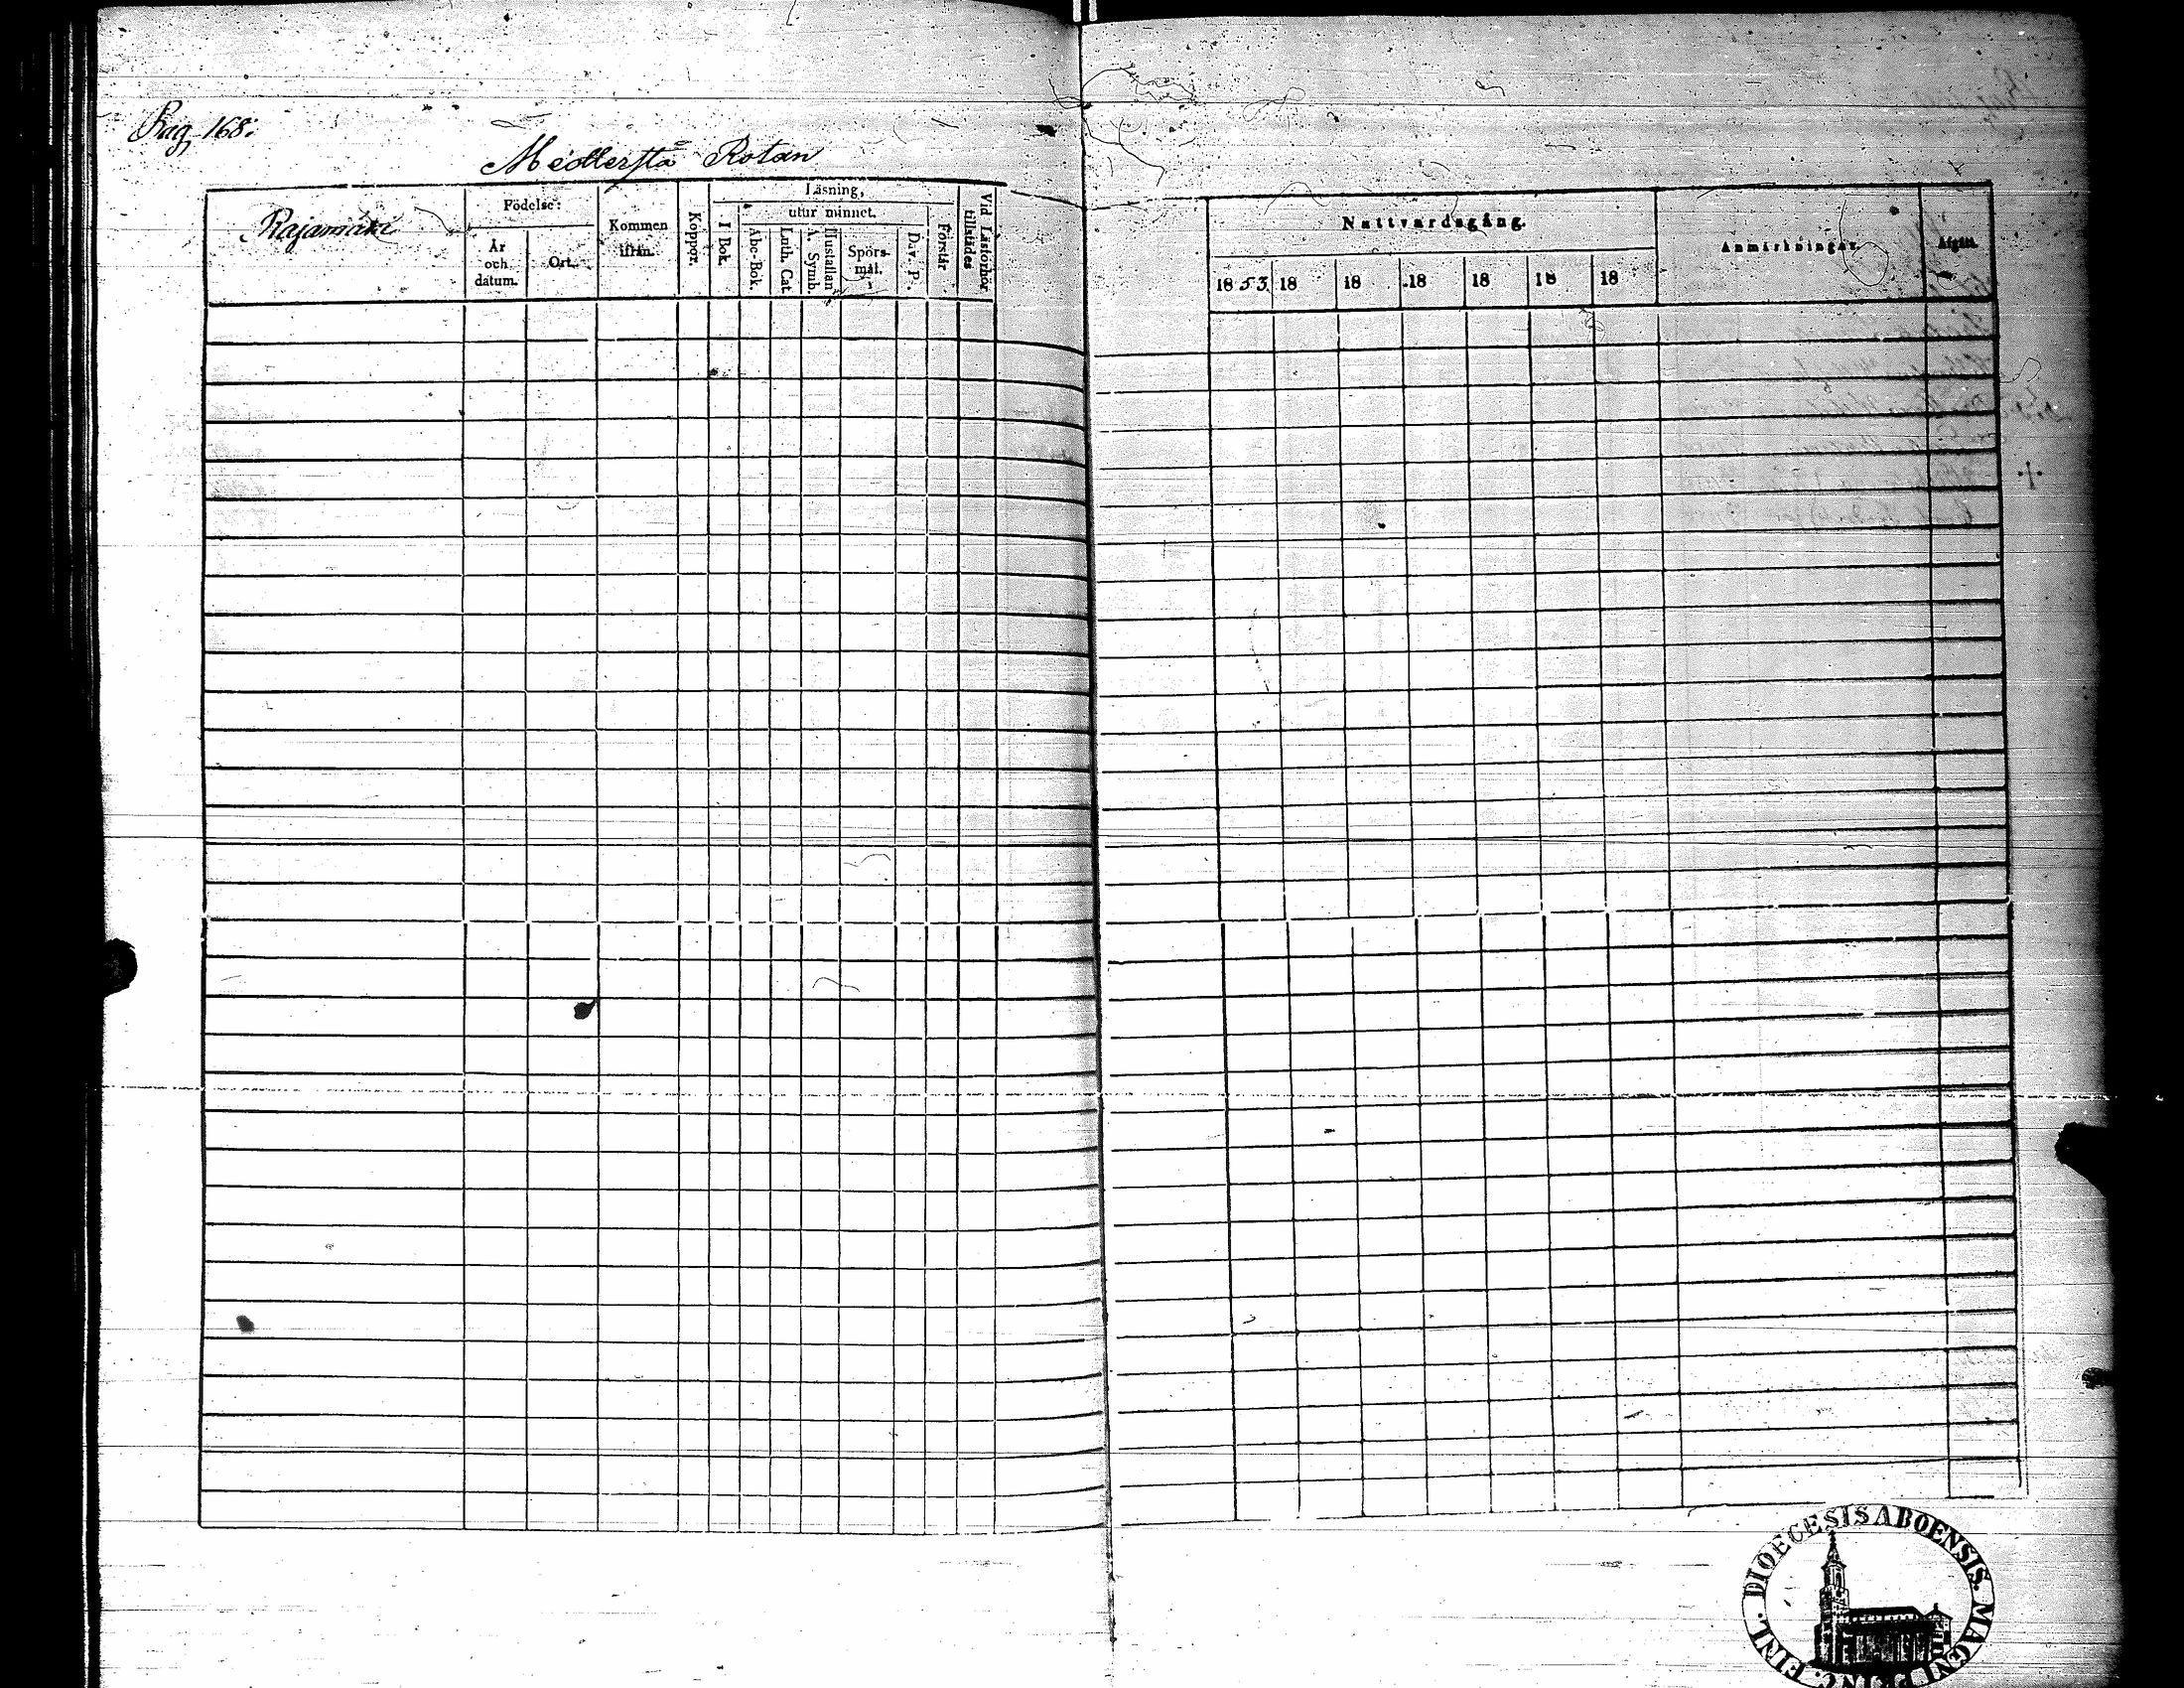 Pag 168.
Medlersta Rotan
Rajamäki
Födelse:
År och datum.
Ort.
Kommen ifrån.
Koppor.
Läsning,
I Bok.
utur minnet.
Abc-Bok.
Luth. Cat.
Hustaflan A. Symb.
Spörsmål.
Dav. P.
Förstår
Vid Läsförhör tillstädes
Nattvardsgång.
1853 18 18 18 18 18 18
Anmärkningar.
Afgått.
DIOECESIS ABOENSIS. MAGNI PRINC. FINL.